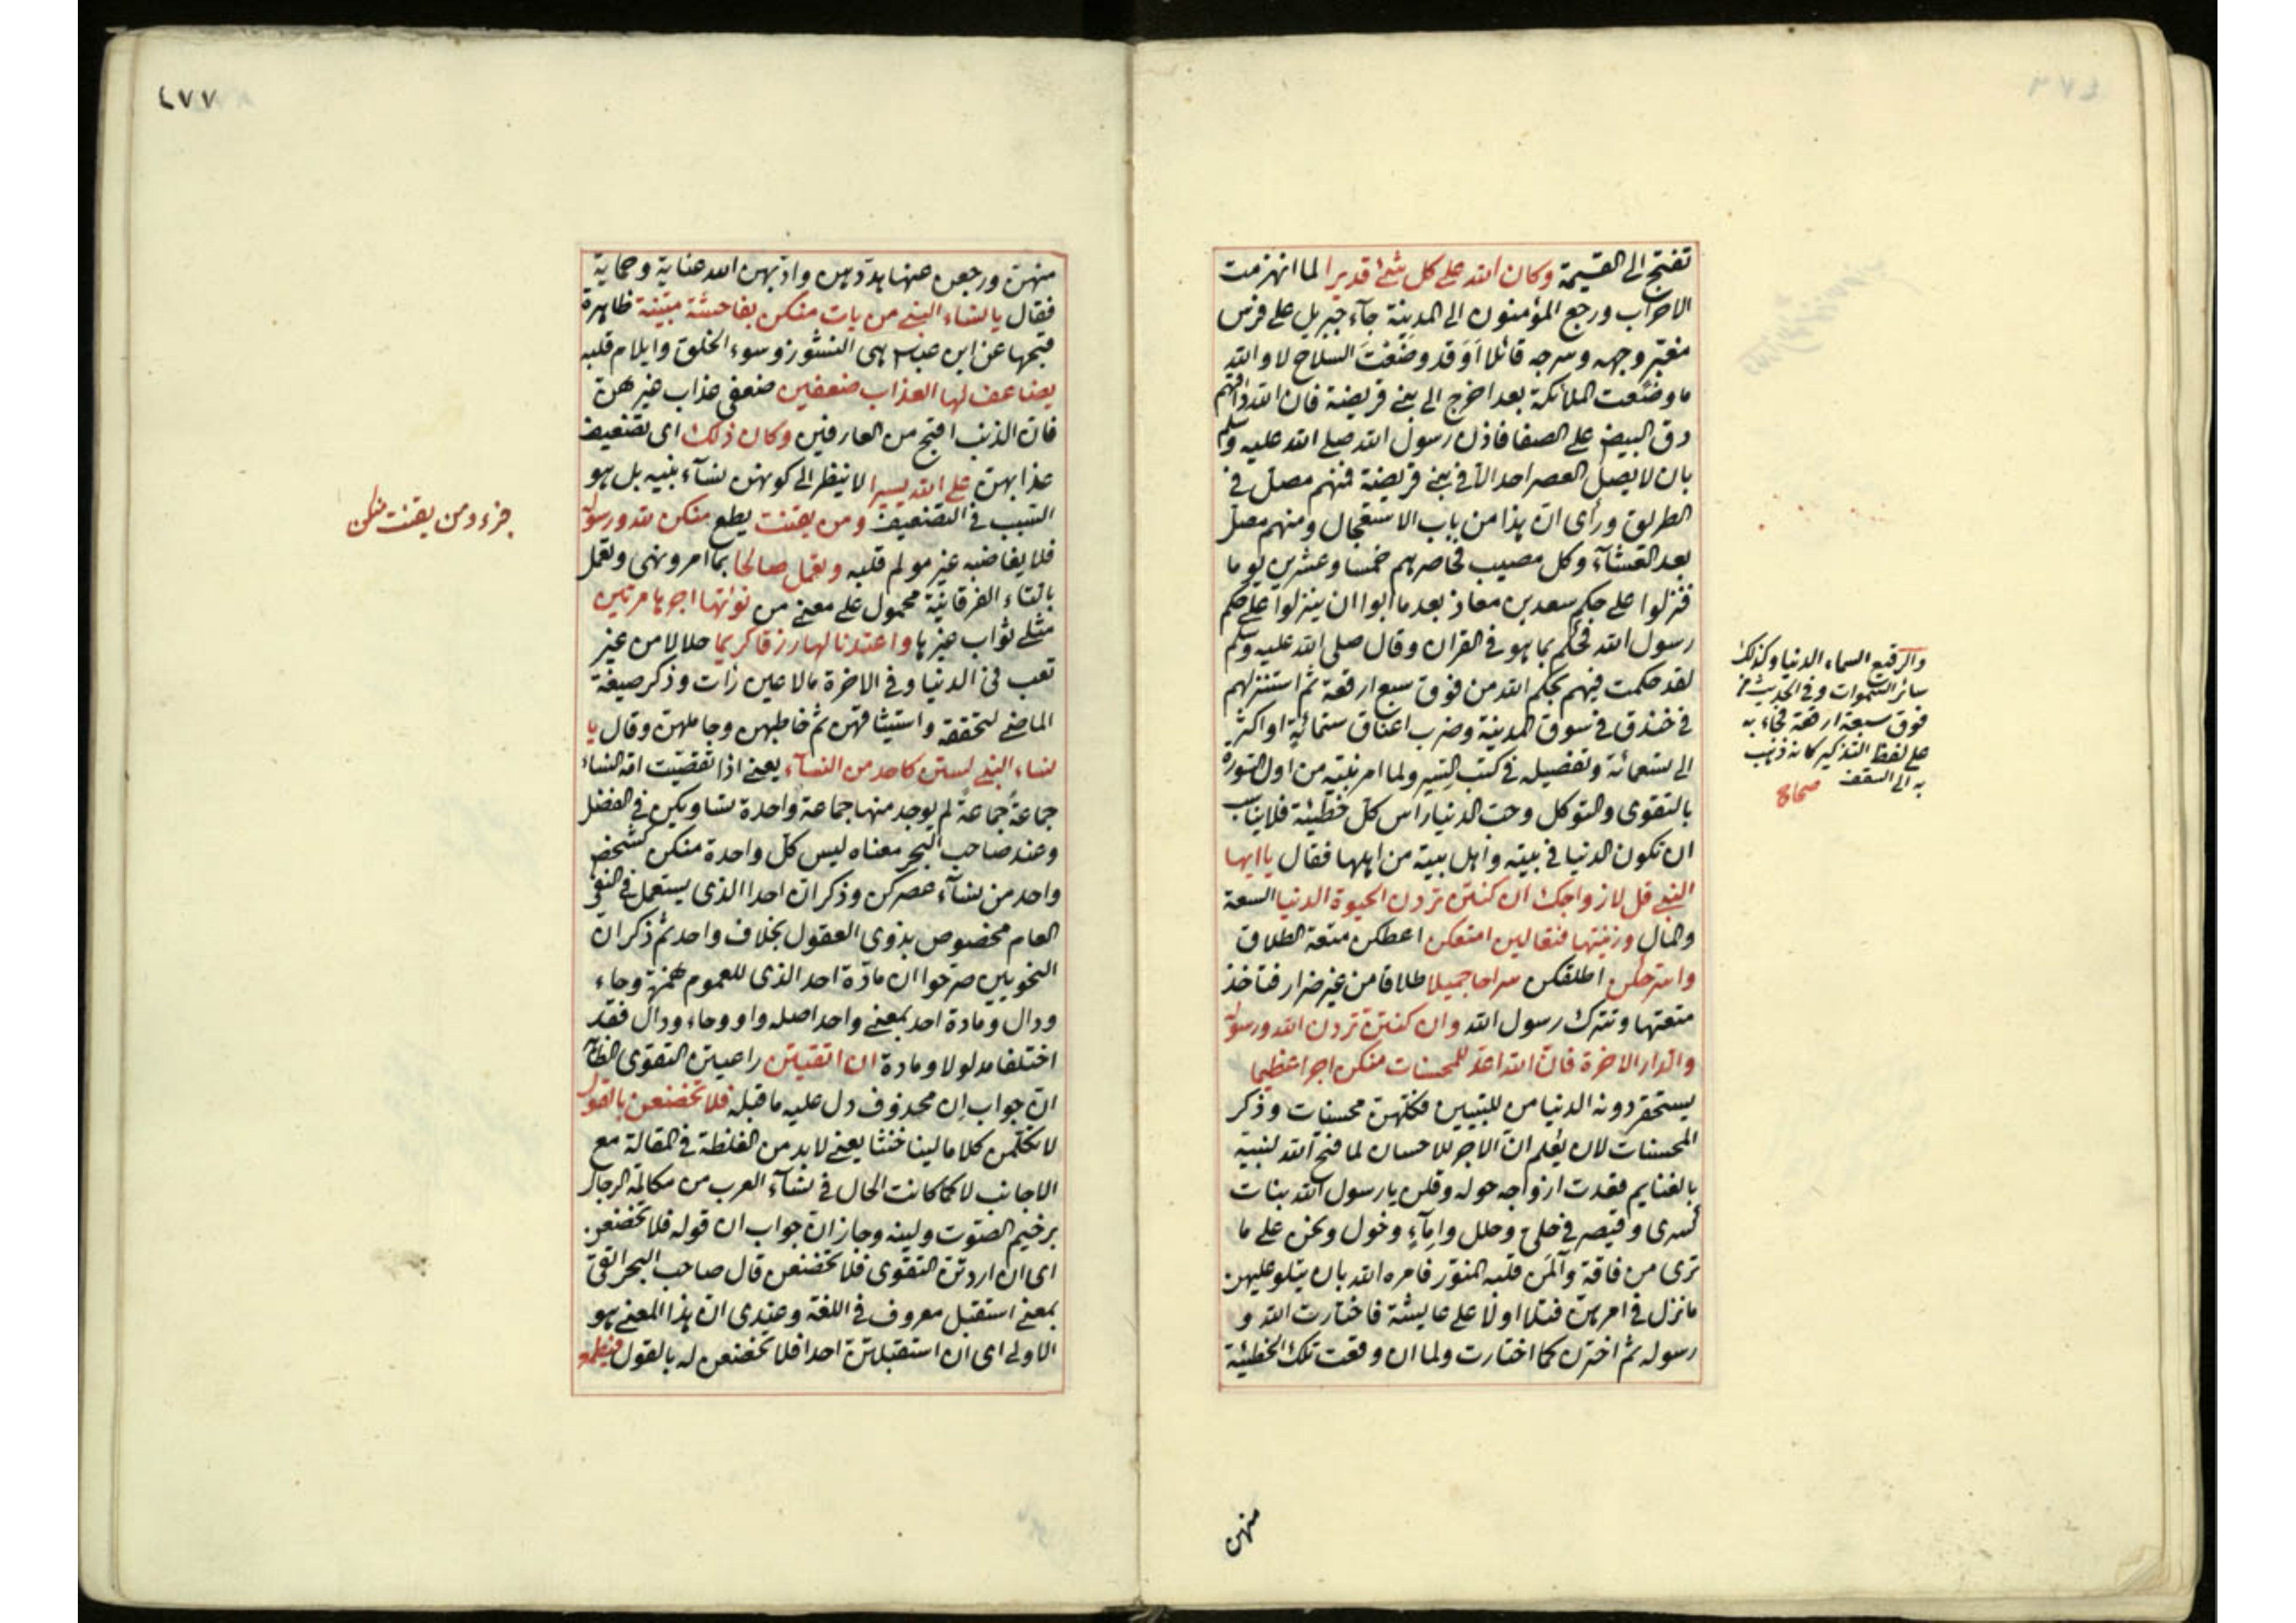 تفتح الى القيمة وكان الله على كل شئ قديرا لما انهزمت
الاحزاب ورجع المؤمنون الى المدينة جآء جبريل على فرس
مغبّر وجهه وسرجه قائلا اَوَقد وضَعْتَ السلاح لا والله
ما وضَعت الملائكة بعد اخرج الى بنى قريضة فان الله داقهم
دق البيض على الصفا فاذن رسول الله صلى الله عليه وسلم
بان لا يصلى العصر احد الا فى بنى قريضة فمنهم مصلّ فى
الطريق ورأى ان هذا من باب الاستعجال ومنهم مصلّ
بعد العشآء وكل مصيب فحاصرهم خمسا وعشرين يوما
فنزلوا على حكم سعد بن معاذ بعد ما ابوا ان ينزلوا على حكم
رسول الله فحكم بما هو فى القران وقال صلى الله عليه وسلم
لقد حكمت فيهم بحكم الله من فوق سبع ارقعة ثم استنزلهم
فى خندق فى سوق المدينة وضرب اعناق ستمائة او اكثر
الى تسعمائة وتفصيله فى كتب السير ولما امر نبيّه من اول السورة
بالتقوى والتوكل وحبّ الدنيا راس كل خطيئة فلا يناسب
ان تكون الدنيا فى بيته واهل بيته من اهلها فقال يا ايها
النبى قل لازواجك ان كنتن تردن الحيوة الدنيا السعة
والمال وزينتها فتعالين امتعكن اعطكن متعة الطلاق
واسرحكن اطلقكن سراحا جميلا طلاقا من غير ضرار فتاخذ
متعتها وتترك رسول الله وان كنتن تردن الله ورسوله
والدار الاخرة فان الله اعد للمحسنات منكن اجرا عظيما
يستحقر دونه الدنيا من للتبيين فكلّهن محسنات وذكر
المحسنات لان يعلم ان الاجر للاحسان لما فتح الله لنبيه
بالغنايم فقدت ازواجه حوله وقلن يا رسول الله بنات
كسرى وقيصر فى حلىّ وحلل وامآءٍ وخول ونحن على ما
ترى من فاقة وآلمن قلبه المنوّر فامره الله بان يتلو عليهن
ما نزل فى امرهن فتلا اولا على عايشة فاختارت الله و
رسوله ثم اخترن كما اختارت ولما ان وقعت تلك الخطيئة
والرقيع السماء الدنيا وكذلك
سائر السموات وفى الحديث من
فوق سبعة ارقعة فجاء به
على لفظ التذكير كانه ذهب
به الى السقف صحاح
منهن
٤٧٧
منهن ورجعن عنها هددهن وادّبهن الله عناية وحماية
فقال يا نساء النبى من يات منكن بفاحشة مبيّنة ظاهرة
قبحها عن ابن عباس هى النشوز وسوء الخلق وايلام قلبه
يضاعف لها العذاب ضعفين ضعفى عذاب غيرهن
فان الذنب اقبح من العارفين وكان ذلك اى تضعيف
عذابهن على الله يسيرا لا ينظر الى كونهن نسآء نبيه بل هو
السبب فى التضعيف ومن يقنت يطع منكن لله ورسوله
فلا يغاضبه غير مولم قلبه وتعمل صالحا بما امر ونهى وتعمل
بالتاء الفوقانية محمول على معنى من نؤتها اجرها مرتين
مثلى ثواب غيرها واعتدنا لها رزقا كريما حلالا من غير
تعب فى الدنيا وفى الاخرة ما لا عين رأت وذكر صيغة
الماضى لتحققه واستيثاقهن ثم خاطبهن وجاملهن وقال يا
نساء النبى لستن كاحد من النسآء يعنى اذا تقصّيت امة النساء
جماعةً جماعةً لم يوجد منها جماعة واحدة تساويكن فى الفضل
وعند صاحب البحر معناه ليس كلّ واحدة منكن كشخص
واحد من نسآء عصركن وذكر ان احدا الذى يستعمل فى النفى
العام مخصوص بذوى العقول بخلاف واحد ثم ذكر ان
النحويين صرّحوا ان مادّة احد الذى للعموم همزة وحاء
ودال ومادة احد بمعنى واحد اصله واو وحاء ودال فقد
اختلفا مدلولا ومادة ان اتقيتن راعيتن التقوى الظاهر
ان جواب اِن محذوف دل عليه ما قبله فلا تخضعن بالقول
لا تكلّمن كلاما لينا خنثا يعنى لابد من الغلظة فى المقالة مع
الاجانب لا كما كانت الحال فى نسآء العرب من مكالمة الرجال
برخيم الصوت ولينه وجاز ان جواب ان قوله فلا تخضعن
اى ان اردتن التقوى فلا تخضعن قال صاحب البحر اتقى
بمعنى استقبل معروف فى اللغة وعندى ان هذا المعنى هو
الاولى اى ان استقبلتن احدا فلا تخضعن له بالقول فيطمع
جزء ومن يقنت منكن